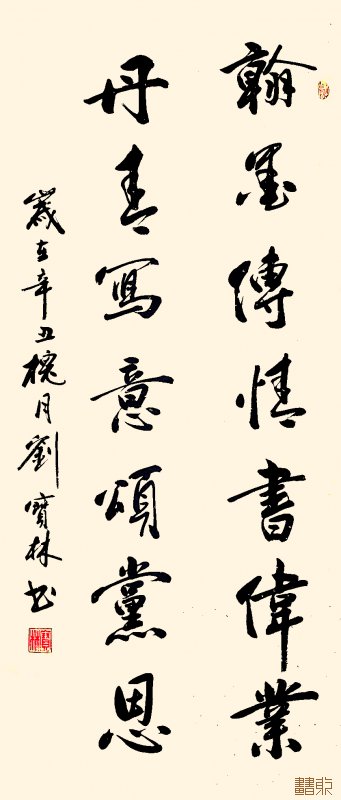 翰墨傳情書偉業
丹青寫意頌黨恩
歲在辛丑槐月劉寶林书